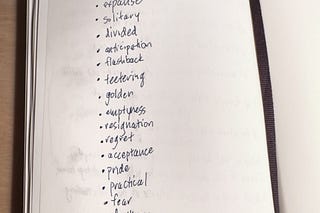 • expanse
• solitary
• divided
• anticipation
• flashback
• teetering
• golden
• emptyness
• resignation
• regret
• acceptance
• pride
• practical
• fear